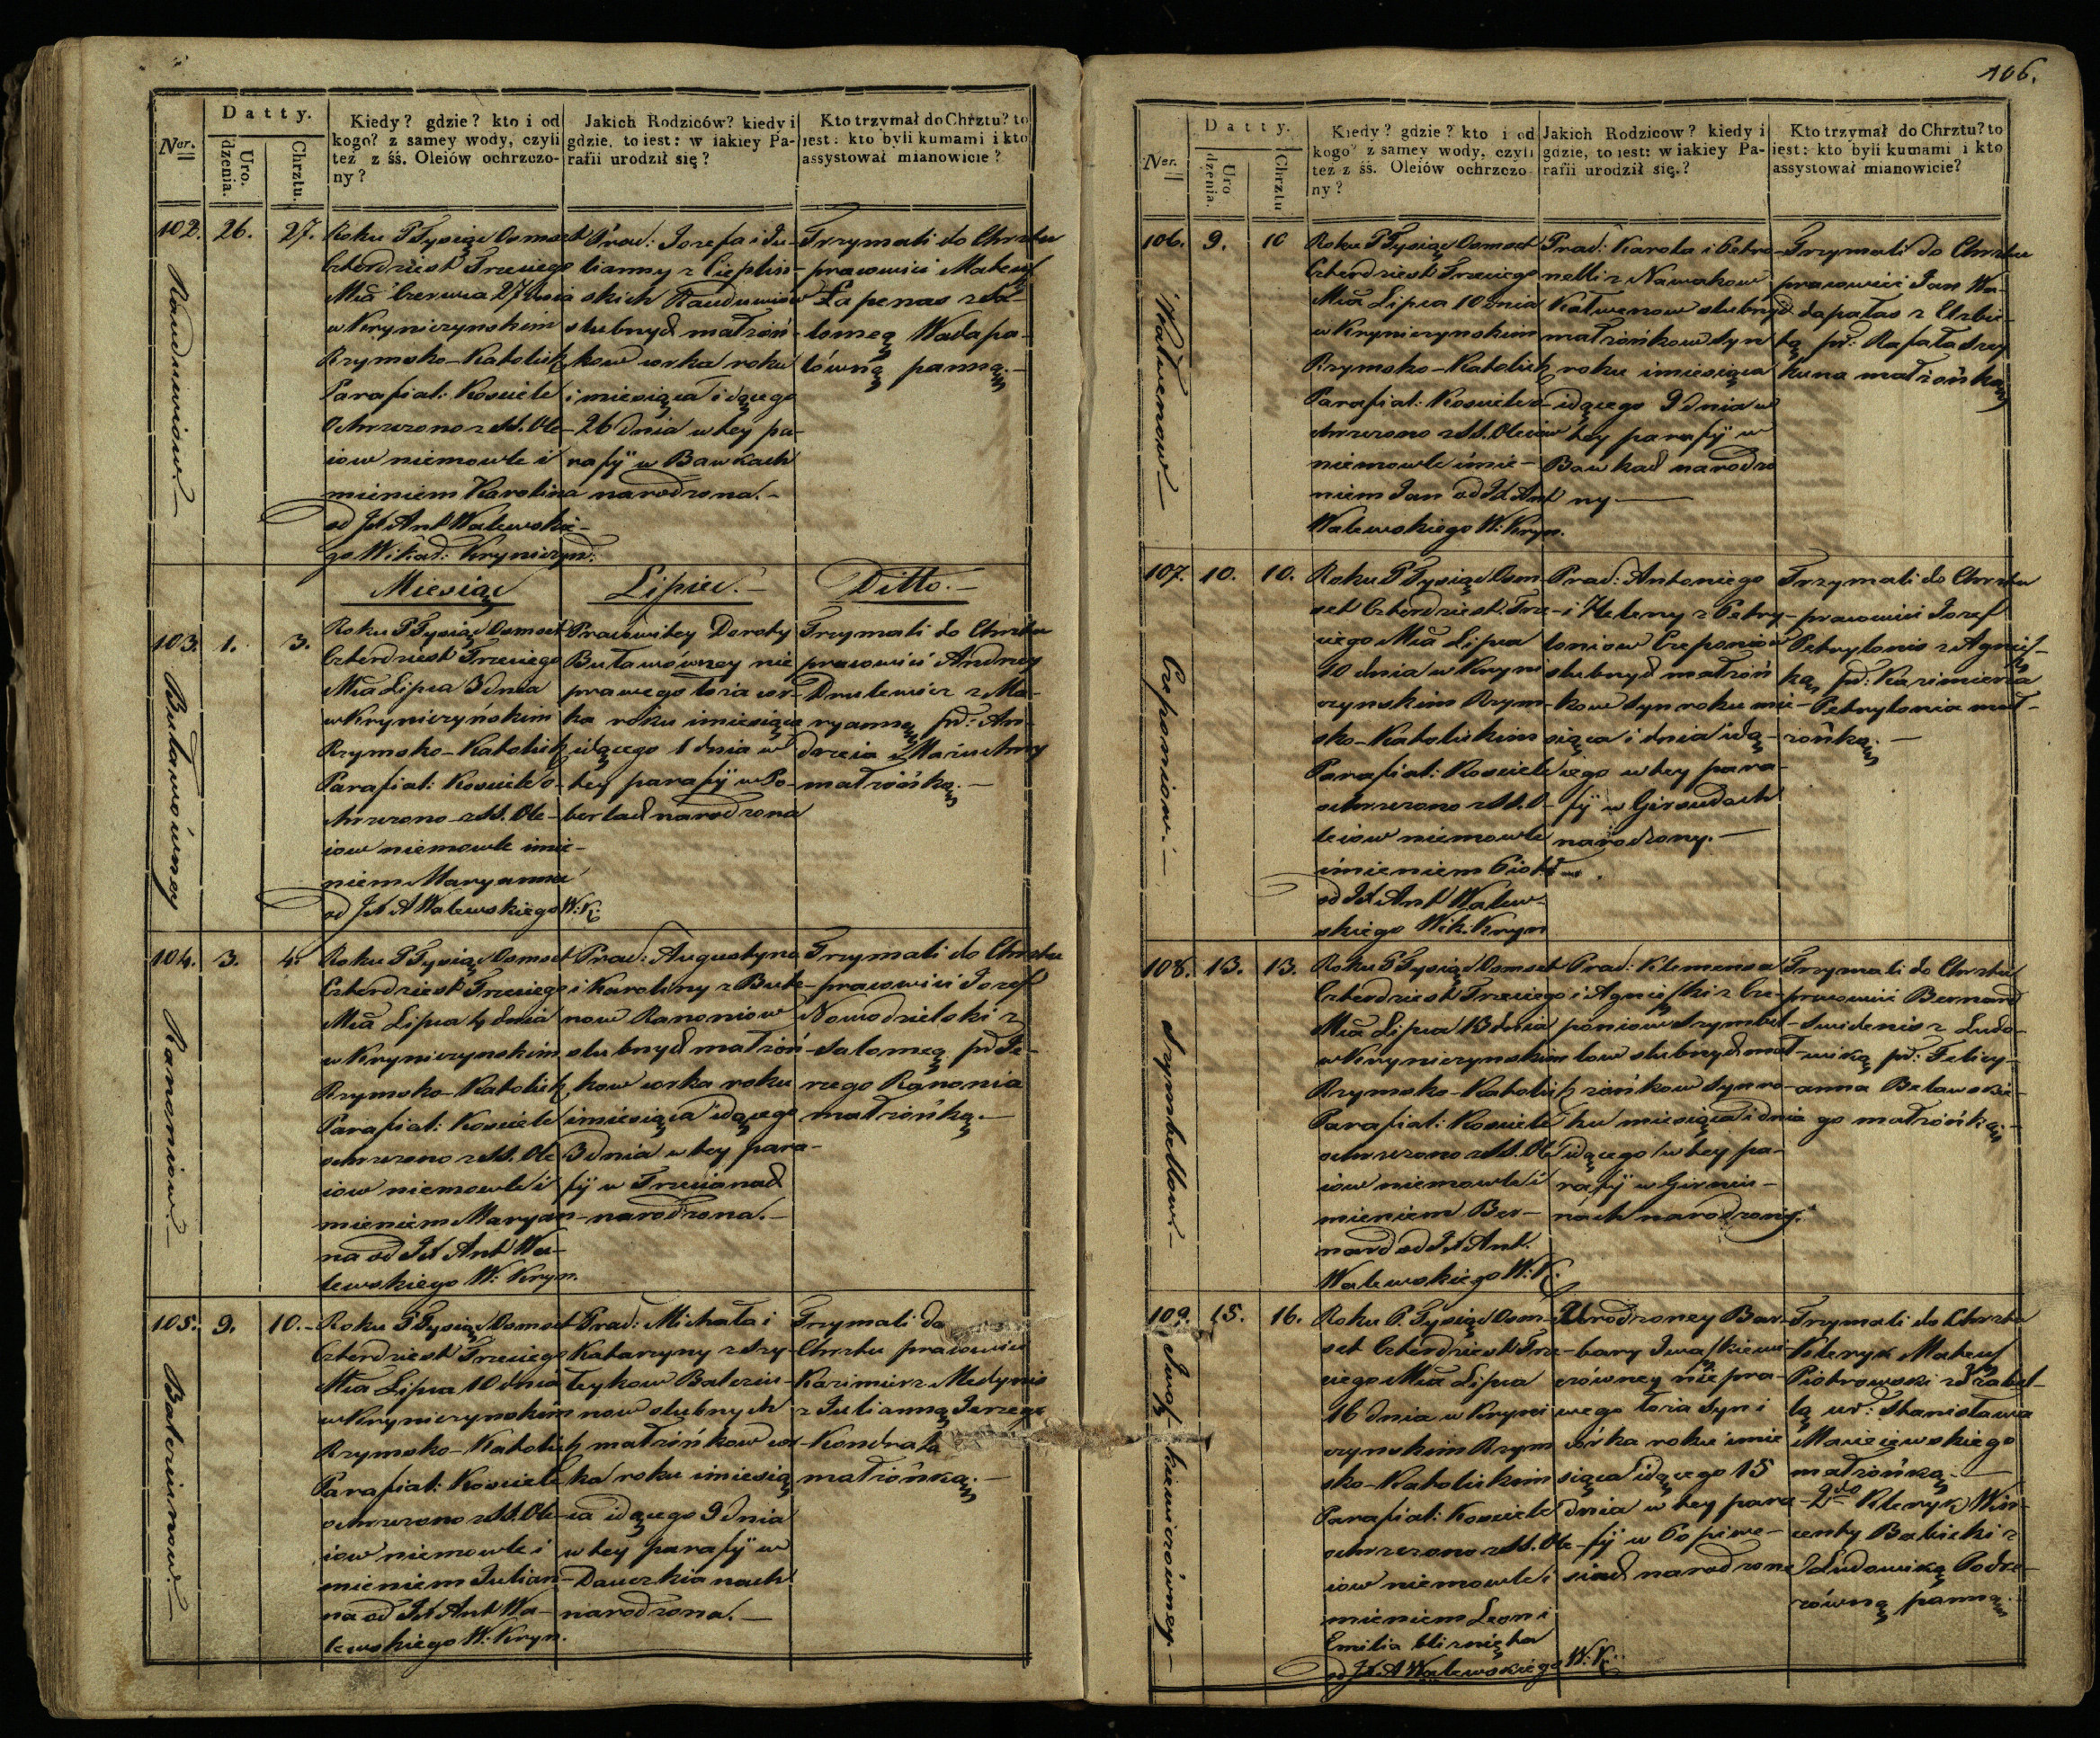 106.
Datty.
Ner.
Uro.
dzenia.
Chrztu.
Kiedy? gdzie? kto i od
kogo? z samey wody, czyli
też z śś. Oleiów ochrzczo-
ny?
Jakich Rodziców? kiedy i
gdzie, to iest: w iakiey Pa-
rafii urodził się?
Kto trzymał do Chrztu? to
iest: kto byli kumami i kto
assystował mianowicie?
102. 26. 27.
Rauduwiow.
Roku P Tysiąc Osmset
Czterdziest Trzeciego
Mca Czerwca 27 dnia
w Kryniczynskim
Rzymsko-Katolick
Parafial: Kościele
Ochrzczono z SS. Ole-
iow niemowle i
mieniem Karolina
od Jx Ant Walewskie-
go Wikad: Kryniczyn:
Prac: Jozefa i Ju-
lianny z Cieplin-
skich Rauduwiow
slubnych małżoń-
kow corka roku
i miesiąca idącego
26 dnia w tey pa-
rafij w Bawkach
narodzona.-
Trzymali do Chrztu
pracowici Mateusz
Łapenas z Sa-
lomeą Wadapa-
lówną panną.-
Miesiąc Lipiec.- Ditto.-
103. 1. 3.
Butawówney
Roku P Tysiąc Osmset
Czterdziest Trzeciego
Mca Lipca 3 dnia
w Kryniczyńskim
Rzymsko-Katolick
Parafial: Kościele o-
chrzczono z SS. Ole-
iow niemowle imie-
niem Maryanna
od Jx A Walewskiego W: K:
Pracowitey Doroty
Butawówney nie
prawego łoża cor-
ka roku i miesiąca
idącego 1 dnia w
tey parafij w Po-
berlach narodzona
Trzymali do Chrztu
pracowici Andrzey
Drulewicz z Ma-
ryanną pd: An-
drzeia
małżonką.-
104. 3. 4.
Ranoniow
Roku P Tysiąc Osmset
Czterdziest Trzeciego
Mca Lipca 4 dnia
w Kryniczynskim
Rzymsko-Katolick
Parafial: Kościele
ochrzczono z SS. Ole
iow niemowle i
mieniem Maryan-
na od Jx Ant Wa-
lewskiego W: Kryn.
Prac: Augustyna
i Karoliny z Bute-
now Ranoniow
slubnych małżoń-
kow corka roku
i miesiąca idącego
3 dnia w tey para-
fij w Trzecianach
narodzona.-
Trzymali do Chrztu
pracowici Jozef
Nowodzielski z
Salomeą pd Je-
rzego Ranonia
małżonką.-
105. 9. 10.-
Bateriunow
Roku P Tysiąc Osmset
Czterdziest Trzeciego
Mca Lipca 10 dnia
w Kryniczynskim
Rzymsko-Katolick
Parafial: Kościele
ochrzczono z SS. Ole-
iow niemowle i
mieniem Julian-
na od Jx Ant Wa-
lewskiego W: Kryn.
Prac: Michała i
Katarzyny z Szy-
łeykow Bateriu-
now slubnych
małżonkow cor-
ka roku i miesią
ca idącego 9 dnia
w tey parafij w
Dauczkianach
narodzona.-
Trzymali do
Chrztu pracowici
Kazimierz Medynis
z Julianną Jerzego
Kondrata
małżonką.-
Datty.
Ner.
Uro
dzenia.
Chrztu
Kiedy? gdzie? kto i od
kogo? z samey wody, czyli
też z śś. Oleiów ochrzczo
ny?
Jakich Rodzicow? kiedy i
gdzie, to iest: w iakiey Pa-
rafii urodził się.?
Kto trzymał do Chrztu? to
iest: kto byli kumami i kto
assystował mianowicie?
106. 9. 10
Katwenow
Roku P Tysiąc Osmset
Czterdziest Trzeciego
Mca Lipca 10 dnia
w Kryniczynskim
Rzymsko-Katolick
Parafial: Kościele o-
chrzczono z SS. Oleiow
niemowle imie-
niem Jan od Jx Ant
Walewskiego W: Kryn.
Prac: Karola i Petro-
nelli z Nawakow
Katwenow slubnych
małżońkow syn
roku i miesiąca
idącego 9 dnia w
tey parafij w
Bawkach narodzo
ny.-
Trzymali do Chrztu
pracowici Jan Wa-
dapałas z Elzbie-
tą pd: Rafała Szey
kuna małżonką
107. 10. 10.
Czeponiow.-
Roku P Tysiąc Osm-
set Czterdziest: Trze-
ciego Mca Lipca
10 dnia w Kryni
czynskim Rzym-
sko-Katolickim
Parafial: Kościele
ochrzczono z SS. O-
leiow niemowle
imieniem Piotr
od Jx Ant Walew-
skiego Wik: Kryn
Prac: Antoniego
i Heleny z Petry-
loniow Czeponiow
slubnych małżoń
kow syn roku mie-
siąca i dnia idą-
cego w tey para
fij w Girsudach
narodzony.-
Trzymali do Chrztu
pracowici Jozef
Petrylonis z Agniesz-
ką pd: Kazimierza
Petrylonia mał-
żonką.-
108. 13. 13.
Szymbellow-
Roku P Tysiąc Osmset
Czterdziest Trzeciego
Mca Lipca 13 dnia
w Krynicznynskim
Rzymsko-Katolick
Parafial: Kościele
ochrzczono z SS. Ole
iow niemowle i
mieniem Ber-
nard od Jx Ant.
Walewskiego W: K.
Prac: Klemensa
i Agnieszki z Cze-
poniow Szymbel-
low slubnych mał-
żońkow syn ro-
ku miesiąca i dnia
idącego w tey pa-
rafij w Girnin-
nach narodzony.
Trzymali do Chrztu
pracowici Bernard
Swidenis z Ludo-
wiką pd: Felicy-
anna Belawskie-
go małżonką.-
109. 15. 16.
Iwaszkiewiczówney.-
Roku P. Tysiąc Osm-
set Czterdziest Trze-
ciego Mca Lipca
16 dnia w Kryni
czynskim Rzym
sko-Katolickim
Parafial: Kościele
ochrzczono z SS. Ole-
iow niemowle i
mieniem Leon i
Emilia bliznięta
od Jx A Walewskiego W: K:
Urodzoney Bar-
bary Iwaszkiewi-
czówney nie pra-
wego łoża syn i
córka roku i mie
siąca idącego 15
dnia w tey para-
fij w Popiwe-
siach narodzone
Trzymali do Chrztu
Kleryk Mateusz
Piotrowski z Izabel-
lą ur: Stanisława
Maciejewskiego
małżonką.-
2do Kleryk Win-
centy Babicki z
Ludowiką Podze-
równą panną